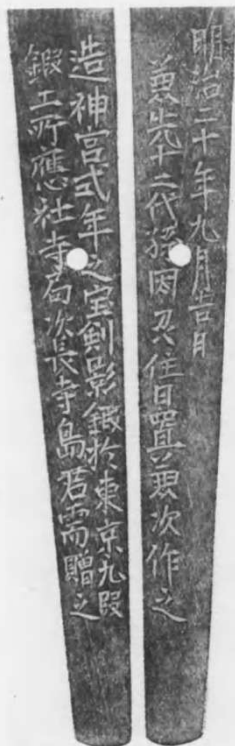 明治二十年九月吉日
兼先十二代孫因刕住日置兼次作之
造神宮式年之宝剣影鍛於東京九段
鍛工所應社寺局次長寺島君需贈之